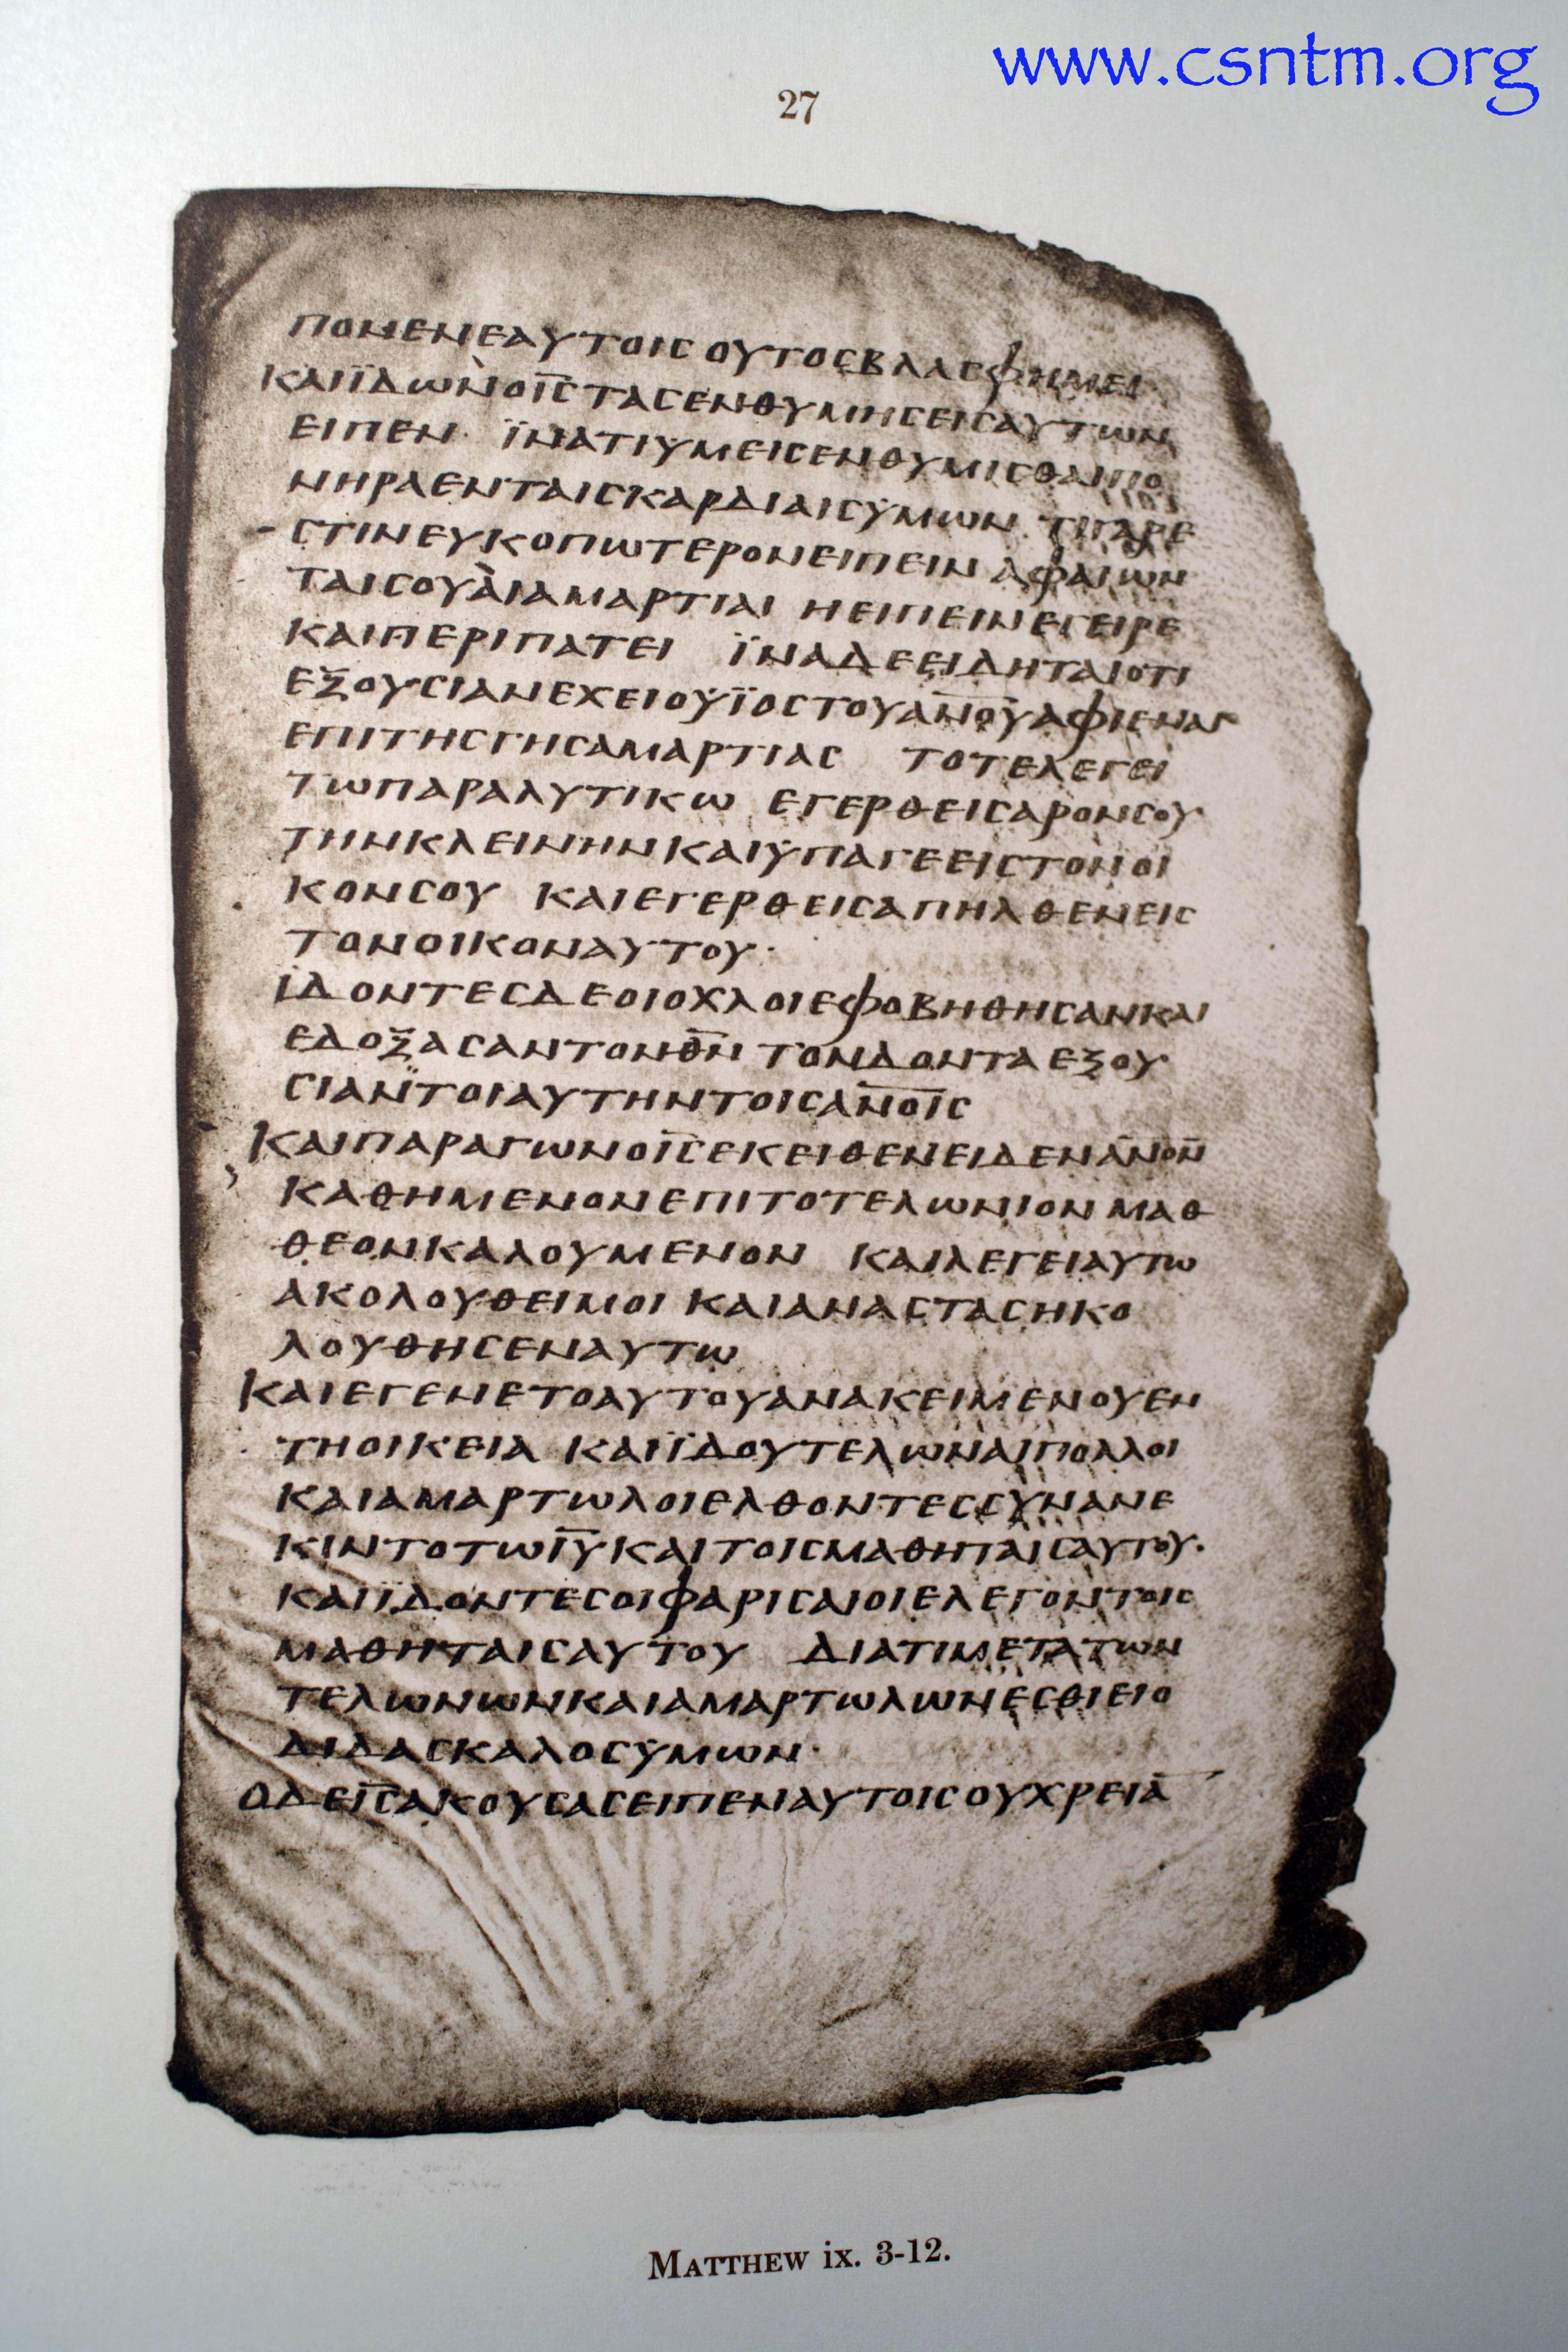 www.csntm.org
27
ΠΟΝΕΝΕΑΥΤΟΙС ΟΥΤΟСΒΛΑСΦΗΜΕΙ
ΚΑΙΪΔΩΝΟΙ̅С̅ΤΑСΕΝΘΥΜΗСΕΙСΑΥΤΩΝ
ΕΙΠΕΝ· ΪΝΑΤΙΥΜΕΙСΕΝΘΥΜΙСΘΑΙΠΟ
ΝΗΡΑΕΝΤΑΙСΚΑΡΔΙΑΙСΥΜΩΝ ΤΙΓΑΡΕ
СΤΙΝΕΥΚΟΠΩΤΕΡΟΝΕΙΠΕΙΝ ΑΦΑΙΩΝ
ΤΑΙСΟΥΑΙΑΜΑΡΤΙΑΙ ΗΕΙΠΕΙΝΕΓΕΙΡΕ
ΚΑΙΠΕΡΙΠΑΤΕΙ ΪΝΑΔΕΕΙΔΗΤΑΙΟΤΙ
ΕΞΟΥСΙΑΝΕΧΕΙΟΥΪΟСΤΟΥΑ̅Ν̅Ο̅Υ̅ΑΦΙΕΝΑΙ
ΕΠΙΤΗСΓΗСΑΜΑΡΤΙΑС ΤΟΤΕΛΕΓΕΙ
ΤΩΠΑΡΑΛΥΤΙΚΩ ΕΓΕΡΘΕΙСΑΡΟΝСΟΥ
ΤΗΝΚΛΕΙΝΗΝΚΑΙΥΠΑΓΕΕΙСΤΟΝΟΙ
ΚΟΝСΟΥ ΚΑΙΕΓΕΡΘΕΙСΑΠΗΛΘΕΝΕΙС
ΤΟΝΟΙΚΟΝΑΥΤΟΥ·
ΙΔΟΝΤΕСΔΕΟΙΟΧΛΟΙΕΦΟΒΗΘΗСΑΝΚΑΙ
ΕΔΟΞΑСΑΝΤΟΝΘ̅Ν̅ ΤΟΝΔΟΝΤΑΕΞΟΥ
СΙΑΝΤΟΙΑΥΤΗΝΤΟΙСΑ̅Ν̅Ο̅Ι̅С
ΚΑΙΠΑΡΑΓΩΝΟΙ̅С̅ΕΚΕΙΘΕΝΕΙΔΕΝΑ̅Ν̅Ο̅Ν̅
ΚΑΘΗΜΕΝΟΝΕΠΙΤΟΤΕΛΩΝΙΟΝΜΑΘ
ΘΕΟΝΚΑΛΟΥΜΕΝΟΝ ΚΑΙΛΕΓΕΙΑΥΤΩ
ΑΚΟΛΟΥΘΕΙΜΟΙ ΚΑΙΑΝΑСΤΑСΗΚΟ
ΛΟΥΘΗСΕΝΑΥΤΩ
ΚΑΙΕΓΕΝΕΤΟΑΥΤΟΥΑΝΑΚΕΙΜΕΝΟΥΕΝ
ΤΗΟΙΚΕΙΑ ΚΑΙΪΔΟΥΤΕΛΩΝΑΙΠΟΛΛΟΙ
ΚΑΙΑΜΑΡΤΩΛΟΙΕΛΘΟΝΤΕССΥΝΑΝΕ
ΚΙΝΤΟΤΩΙ̅Υ̅ΚΑΙΤΟΙСΜΑΘΗΤΑΙСΑΥΤΟΥ·
ΚΑΙΪΔΟΝΤΕСΟΙΦΑΡΙСΑΙΟΙΕΛΕΓΟΝΤΟΙС
ΜΑΘΗΤΑΙСΑΥΤΟΥ ΔΙΑΤΙΜΕΤΑΤΩΝ
ΤΕΛΩΝΩΝΚΑΙΑΜΑΡΤΩΛΩΝΕСΘΙΕΙΟ
ΔΙΔΑСΚΑΛΟСΥΜΩΝ·
ΟΔΕΙ̅С̅ΑΚΟΥСΑСΕΙΠΕΝΑΥΤΟΙСΟΥΧΡΕΙΑ̅
MATTHEW ix. 3-12.